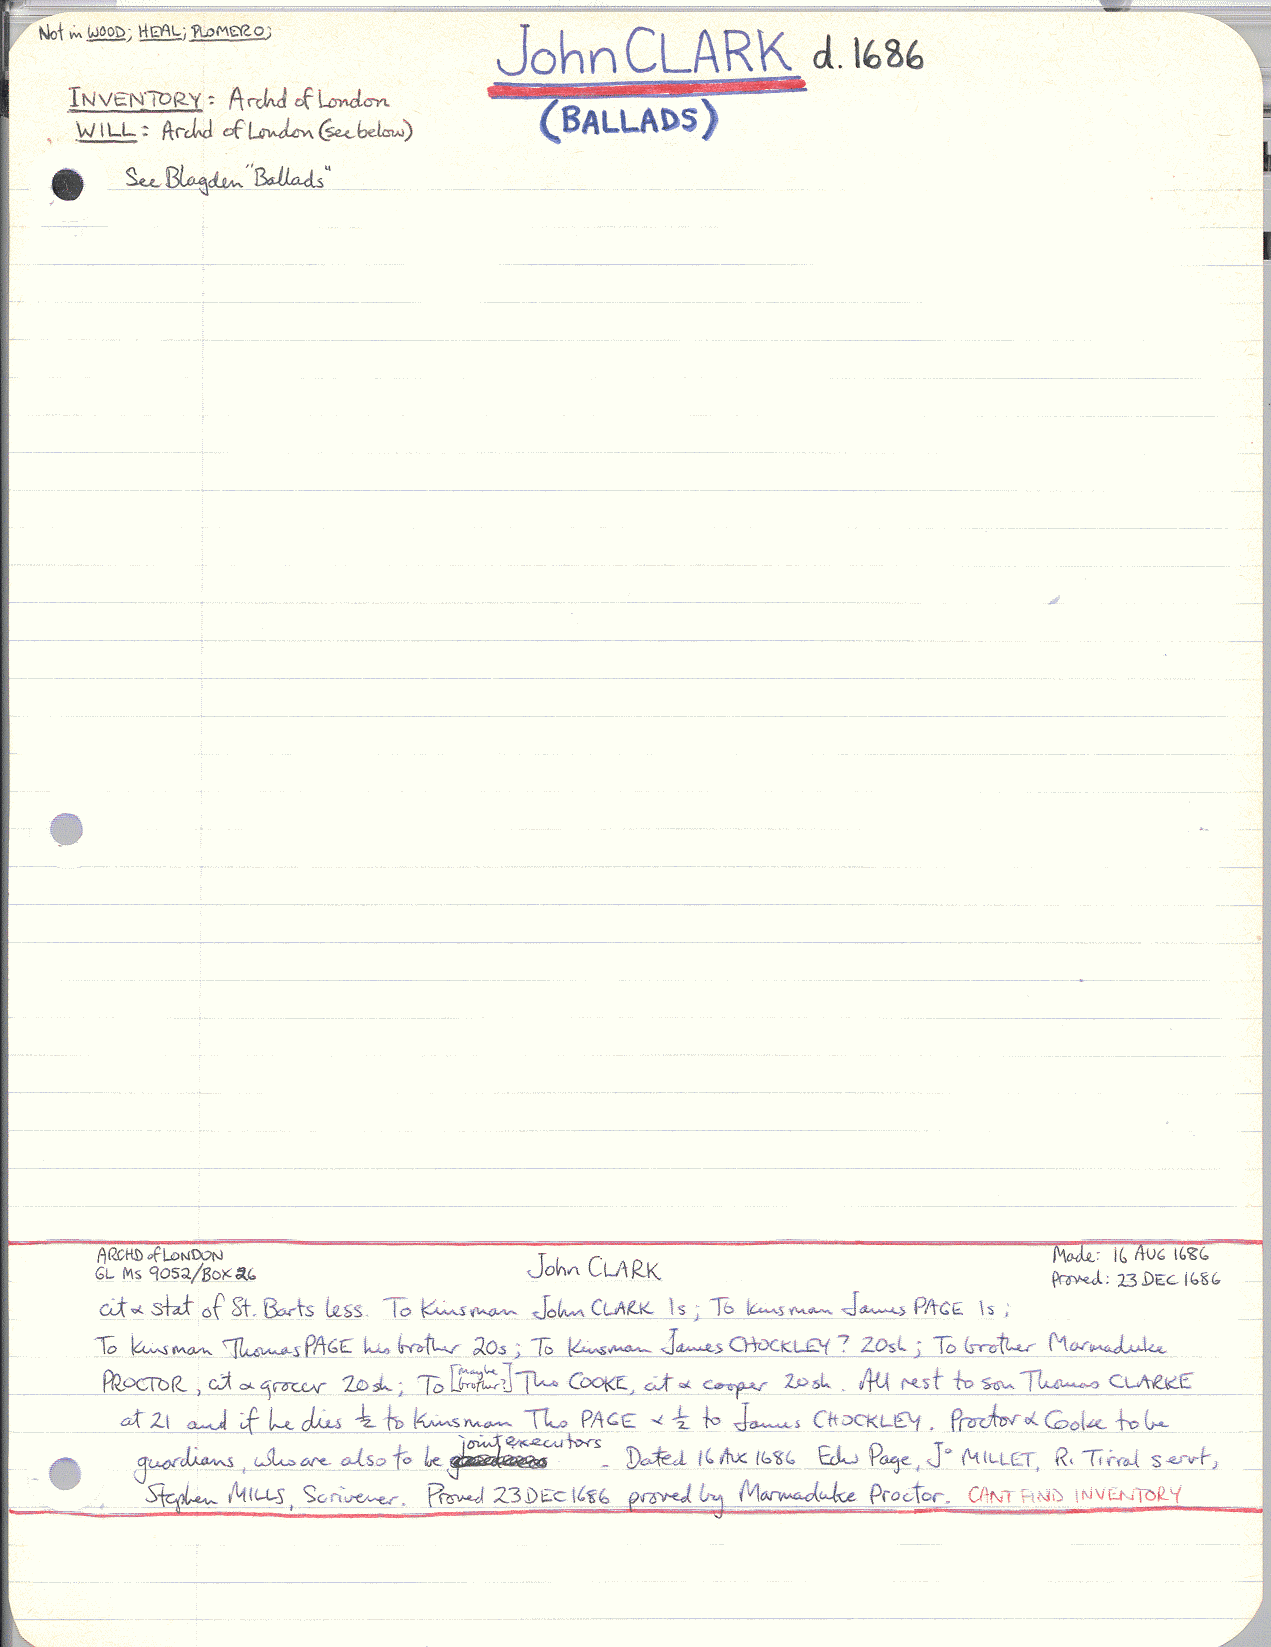 Not in WOOD; HEAL; PLOMERO;
John CLARK d. 1686
(BALLADS)
INVENTORY: Archd of London
WILL: Archd of London (see below)
See Blagden "Ballads"
ARCHD of LONDON
GL Ms 9052/BOX 26
John CLARK
Made: 16 AUG 1686
Proved: 23 DEC 1686
cit & stat of St. Barts less. To Kinsman John CLARK 1s; To kinsman James PAGE 1s;
To kinsman Thomas PAGE his brother 20s; To Kinsman James CHOCKLEY? 20sh; To brother Marmaduke
PROCTOR, cit & grocer 20sh; To [maybe brother?] Tho COOKE, cit & cooper 20sh. All rest to son Thomas CLARKE
at 21 and if he dies ½ to kinsman Tho PAGE & ½ to James CHOCKLEY. Proctor & Cooke to be
guardians, who are also to be joint executors - Dated 16 AUG 1686 Edw Page, Jo MILLET, R. Tirral servt,
Stephen MILLS, Scrivener. Proved 23 DEC 1686 proved by Marmaduke Proctor. CANT FIND INVENTORY